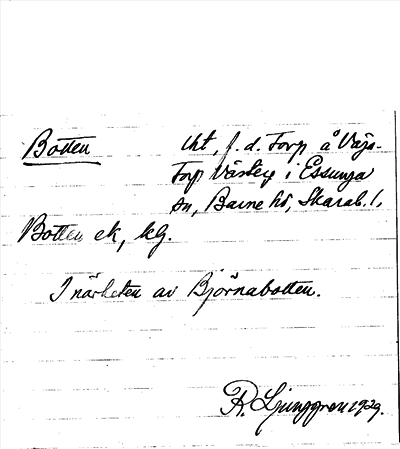 Botten
lht, f. d. Torp å Vägs-
Torp Västeg i Essunga
sn, Barne hd, Skarab. l.
Botten ek, kg.
I närheten av Björnabotten.
R. Ljunggren 1929.